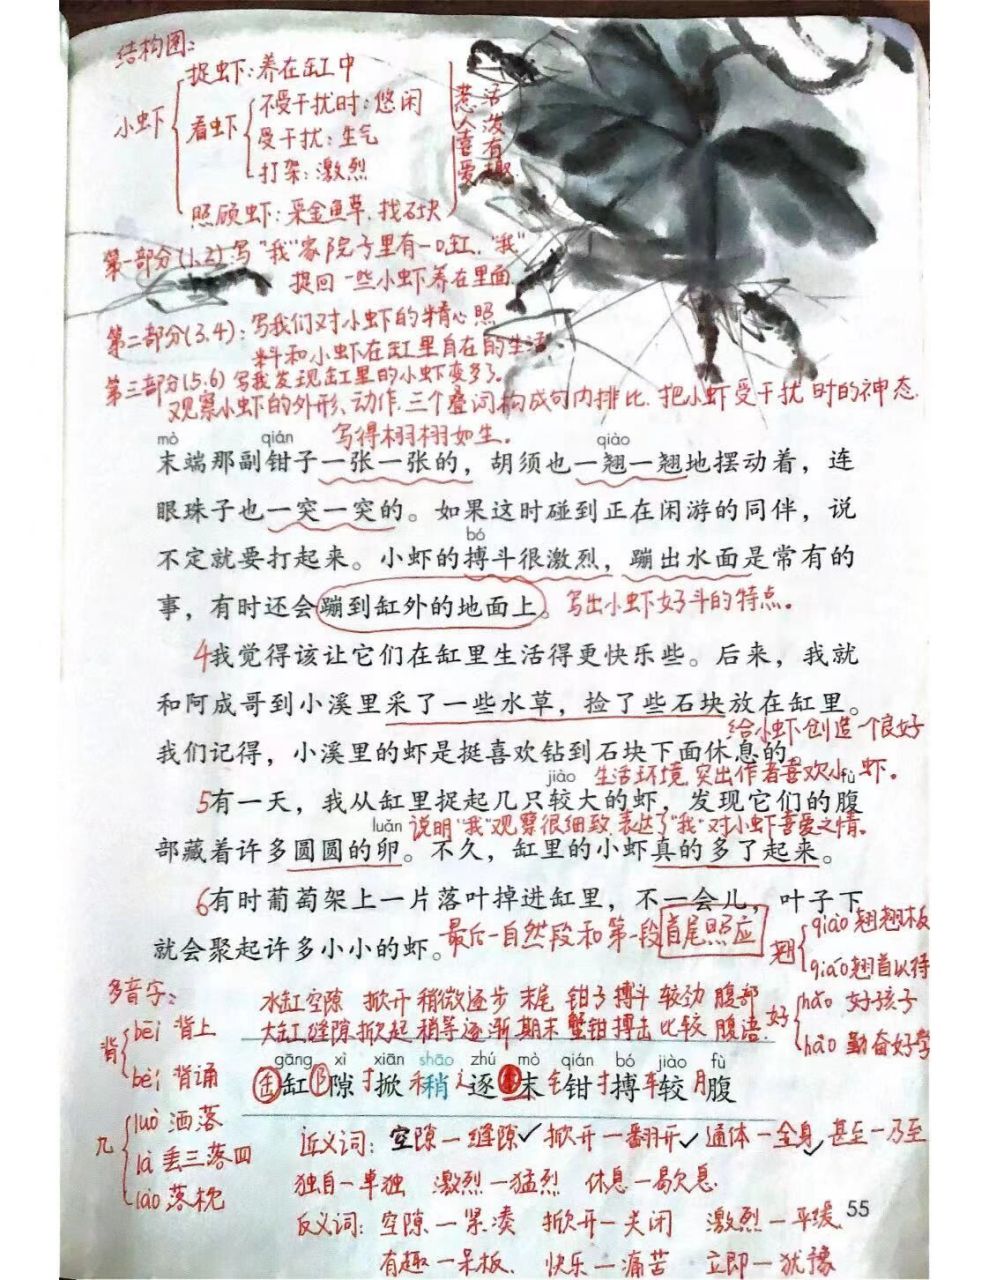 结构图：
小虾
捉虾：养在缸中
看虾
不受干扰时：悠闲
受干扰：生气
打架：激烈
照顾虾：采金鱼草，找石块
惹人喜爱
活泼有趣
第一部分(1、2)：写"我"家院子里有一口缸，"我"
捉回一些小虾养在里面
第二部分(3、4)：写我们对小虾的精心照
料和小虾在缸里自在的生活
第三部分(5、6) 写我发现缸里的小虾变多了。
观察小虾的外形、动作，三个叠词构成句内排比，把小虾受干扰时的神态
写得栩栩如生。
mò qián qiào
末端那副钳子一张一张的，胡须也一翘一翘地摆动着，连
眼珠子也一突一突的。如果这时碰到正在闲游的同伴，说
bó
不定就要打起来。小虾的搏斗很激烈，蹦出水面是常有的
事，有时还会蹦到缸外的地面上。写出小虾好斗的特点。
4我觉得该让它们在缸里生活得更快乐些。后来，我就
和阿成哥到小溪里采了一些水草，捡了些石块放在缸里。
给小虾创造一个良好
我们记得，小溪里的虾是挺喜欢钻到石块下面休息的。
生活环境，突出作者喜欢小虾。
jiào fù
5有一天，我从缸里捉起几只较大的虾，发现它们的腹
luǎn 说明"我"观察很细致，表达了"我"对小虾喜爱之情。
部藏着许多圆圆的卵。不久，缸里的小虾真的多了起来。
6有时葡萄架上一片落叶掉进缸里，不一会儿，叶子下
就会聚起许多小小的虾。最后一自然段和第一段首尾照应
翘
qiào 翘翘板
qiáo 翘首以待
好
hǎo 好孩子
hào 勤奋好学
多音字：
背
bēi 背上
bèi 背诵
luò 洒落
là 丢三落四
lào 落枕
水缸 空隙 掀开 稍微 逐步 末尾 钳子 搏斗 较劲 腹部
大缸 缝隙 掀起 稍等 逐渐 期末 蟹钳 搏击 比较 腹语
gāng xì xiān shāo zhú mò qián bó jiào fù
缸 隙 掀 稍 逐 末 钳 搏 较 腹
近义词：空隙—缝隙 掀开—翻开 通体—全身 甚至—乃至
独自—单独 激烈—猛烈 休息—歇息
反义词：空隙—紧凑 掀开—关闭 激烈—平缓
有趣—呆板 快乐—痛苦 立即—犹豫
55